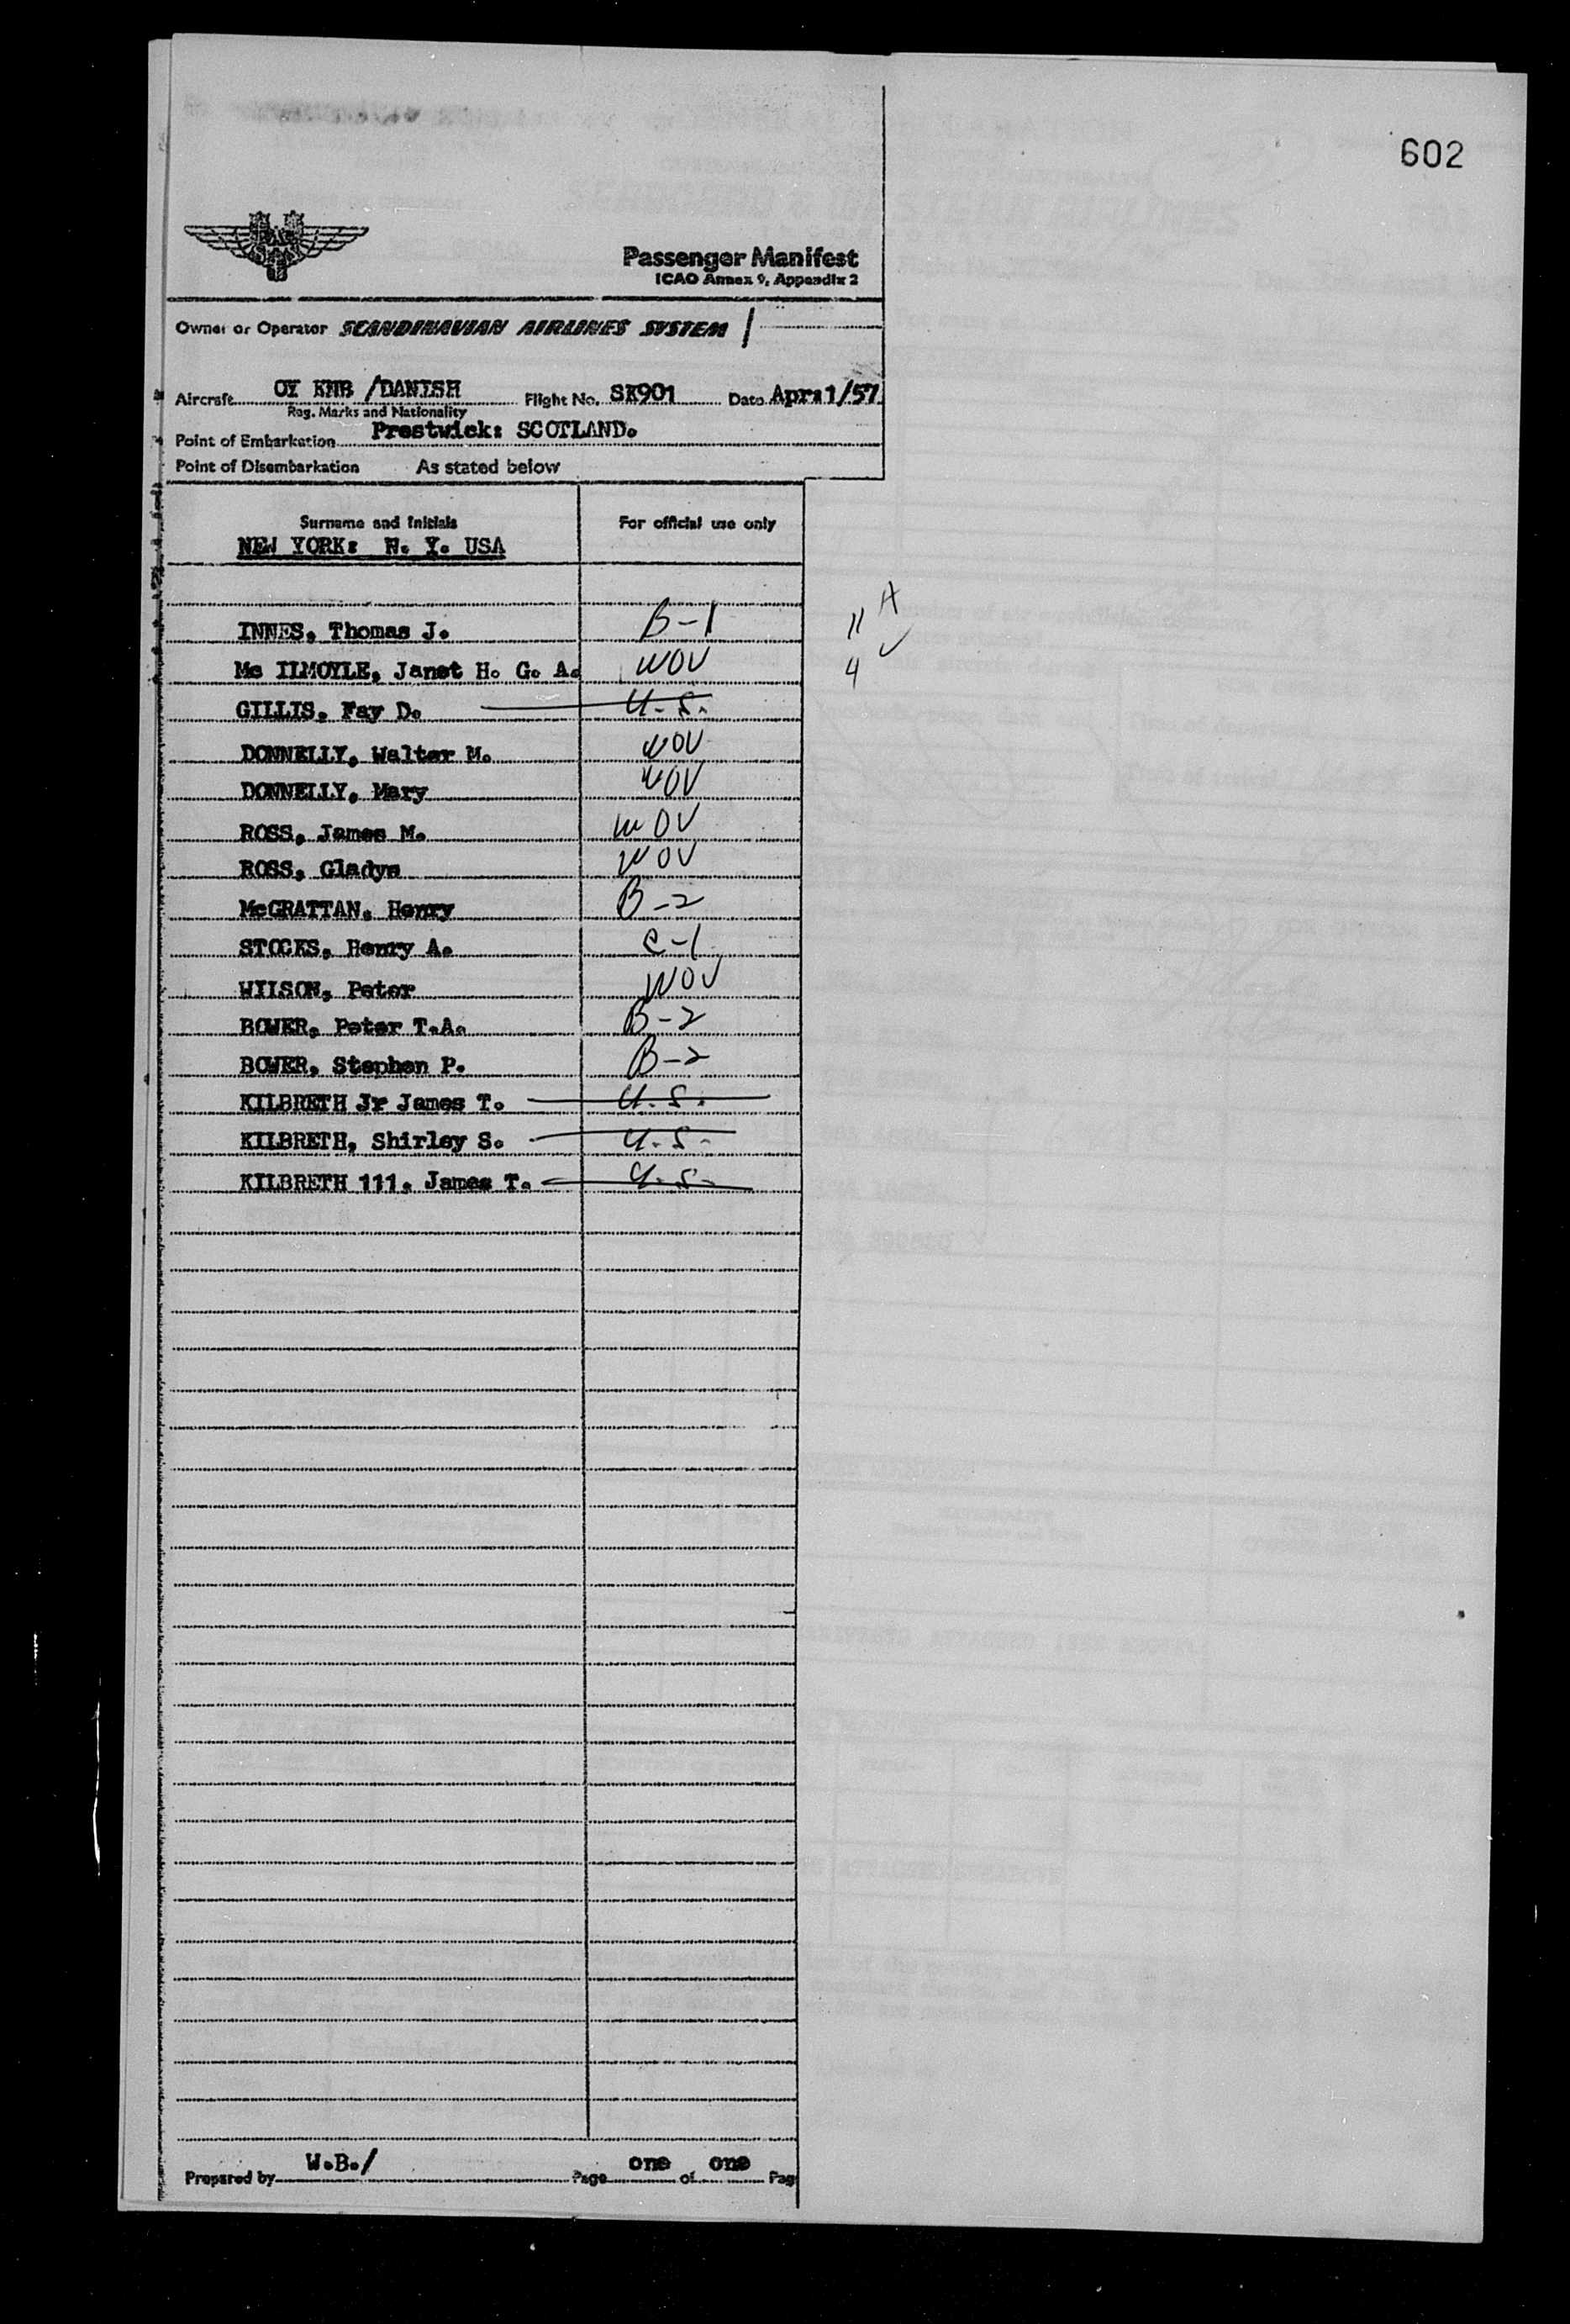 602
Passenger Manifest
ICAO Annex 9, Appendix 2
Owner or Operator SCANDINAVIAN AIRLINES SYSTEM /
Aircraft OY KNB /DANISH Flight No. SK901 Date Apr:1/57
Reg. Marks and Nationality
Point of Embarkation Prestwick: SCOTLAND.
Point of Disembarkation As stated below
Surname and Initials For official use only
NEW YORK: N. Y. USA
INNES, Thomas J. B-1 11 A
Mc ILMOYLE, Janet H. G. A. WOV 4 ✓
GILLIS, Fay D. U.S.
DONNELLY, Walter M. WOV
DONNELLY, Mary WOV
ROSS, James M. WOV
ROSS, Gladys WOV
McGRATTAN, Henry B-2
STOCKS, Henry A. C-1
WILSON, Peter WOV
BOWER, Peter T.A. B-2
BOWER, Stephen P. B-2
KILBRETH Jr James T. U.S.
KILBRETH, Shirley S. U.S.
KILBRETH 111, James T. U.S.
Prepared by W.B./ Page one of one Pag